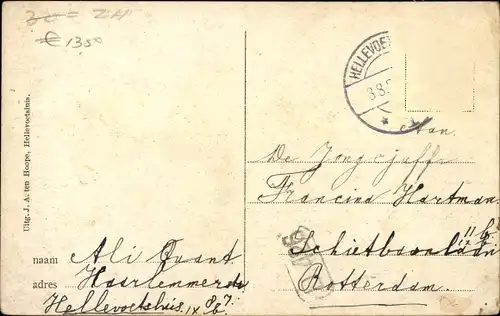 30 = ZH
€ 1350
Uitg. J. A. ten Hoope, Hellevoetsluis.
HELLEVOET
8.8.
Aan
De Jongejuffr
Francina Hartman
Schietbaanlaan 11 b
Rotterdam.
naam Ali Quant
adres Haarlemmerstr
Hellevoetsluis